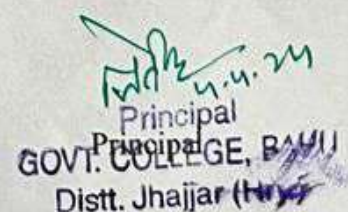 4.4.24
Principal
Principal
GOVT. COLLEGE, BAHU
Distt. Jhajjar (Hry)